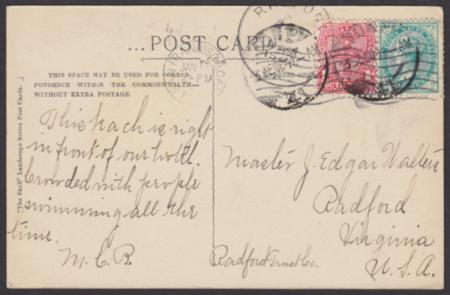 ...POST CARD...
THIS SPACE MAY BE USED FOR CORRES-
PONDENCE WITHIN THE COMMONWEALTH
WITHOUT EXTRA POSTAGE.
"The Shell" Landscape Series Post Cards.
This beach is right
in front of our hotel.
Crowded with people
swimming all the
time.
M. C. B.
Master J. Edgar Walters
Radford
Virginia
U. S. A.
Radford Trust Co.
JAN